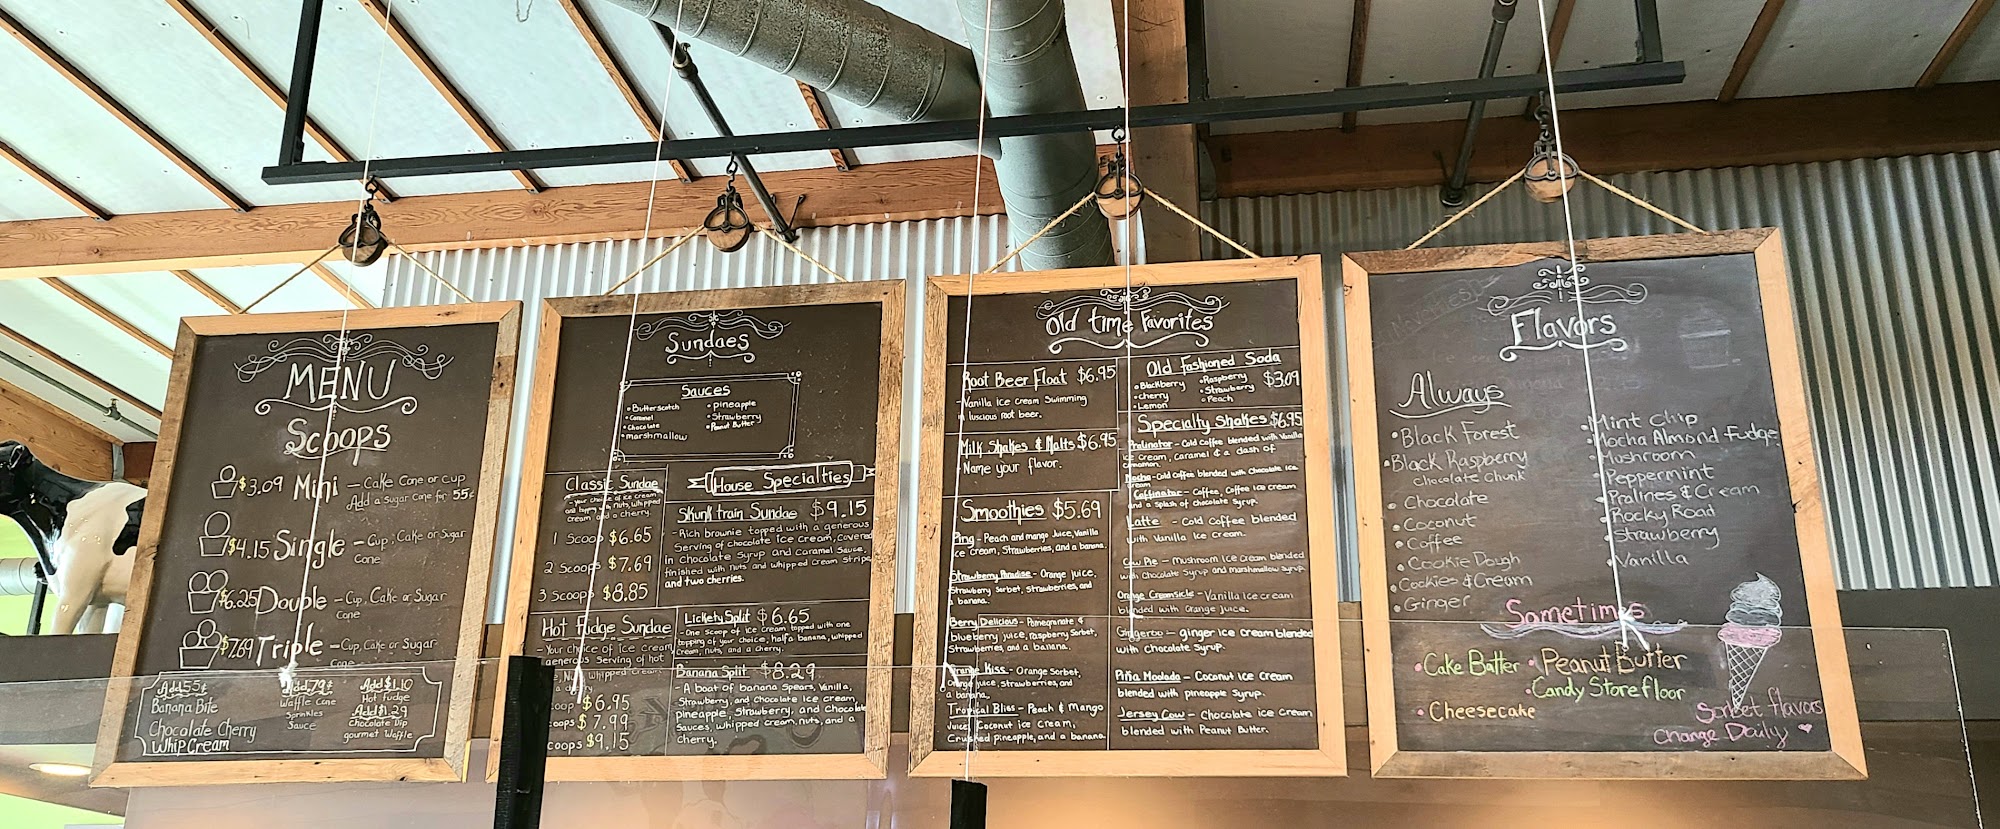 MENU
Scoops
$3.09 Mini - Cake Cone or cup
Add a Sugar Cone for 55¢
$4.15 Single - Cup, Cake or Sugar
Cone
$6.25 Double - Cup, Cake or Sugar
Cone
$7.69 Triple - Cup, Cake or Sugar
Cone
Add 55¢
Banana Bite
Chocolate Cherry
Whip Cream
Add 79¢
Waffle Cone
Sprinkles
Sauce
Add $1.10
Hot fudge
Add $1.29
Chocolate Dip
gourmet Waffle
Sundaes
Sauces
• Butterscotch
• Caramel
• Chocolate
• marshmallow
• pineapple
• Strawberry
• Peanut Butter
Classic Sundae
- Your choice of ice cream
and topping, nuts, whipped
cream and a cherry.
1 Scoop $6.65
2 Scoops $7.69
3 Scoops $8.85
Hot Fudge Sundae
- Your choice of Ice cream
generous serving of hot
Nuts, Whipped cream
$6.95
oops $7.99
coops $9.15
House Specialties
Skunk train Sundae $9.15
- Rich brownie topped with a generous
Serving of chocolate Ice Cream, covered
in Chocolate Syrup and Caramel Sauce,
finished with nuts and whipped cream stripe
and two cherries.
Lickety Split $6.65
- One Scoop of ice cream topped with one
topping of your choice, half a banana, whipped
cream, nuts, and a cherry.
Banana Split $8.29
- A boat of banana spears, Vanilla,
Strawberry, and Chocolate Ice cream,
pineapple, Strawberry, and Chocolate
Sauces, whipped cream, nuts, and a
cherry.
Old time Favorites
Root Beer Float $6.95
- Vanilla ice cream Swimming
in luscious root beer.
Milk Shakes & Malts $6.95
- Name your flavor.
Smoothies $5.69
Ping - Peach and mango Juice, Vanilla
ice cream, Strawberries, and a banana.
Strawberry Paradise - Orange juice,
Strawberry Sorbet, Strawberries, and
a banana.
Berry Delicious - Pomegranate &
blueberry juice, raspberry Sorbet,
Strawberries, and a banana.
Orange Kiss - Orange Sorbet,
Orange juice, Strawberries, and
a banana,
Tropical Bliss - Peach & Mango
Juice, Coconut ice Cream,
Crushed pineapple, and a banana.
Old fashioned Soda
• Blackberry
• cherry
• Lemon
• Raspberry
• Strawberry
• Peach
$3.09
Specialty Shakes $6.95
Pralinator - Cold Coffee blended with Vanilla
ice Cream, caramel & a dash of
cinnamon.
Mocha - Cold Coffee blended with Chocolate Ice
Cream
Caffinator - Coffee, Coffee Ice cream
and a splash of chocolate Syrup.
Latte - Cold Coffee blended
with Vanilla Ice Cream.
Cow Pie - mushroom ice cream blended
with Chocolate Syrup and marshmallow syrup
Orange Creamsicle - Vanilla ice cream
blended with Orange juice.
Gingeroo - ginger ice cream blended
with Chocolate Syrup.
Piña Moolada - Coconut ice Cream
blended with pineapple Syrup.
Jersey Cow - Chocolate ice cream
blended with Peanut Butter.
Flavors
Always
• Black Forest
• Black Raspberry
Chocolate Chunk
• Chocolate
• Coconut
• Coffee
• Cookie Dough
• Cookies & Cream
• Ginger
• Mint Chip
• Mocha Almond Fudge
• Mushroom
• Peppermint
• Pralines & Cream
• Rocky Road
• Strawberry
• Vanilla
Sometimes
• Cake Batter
• Cheesecake
• Peanut Butter
• Candy Store floor
Sorbet flavors
Change Daily